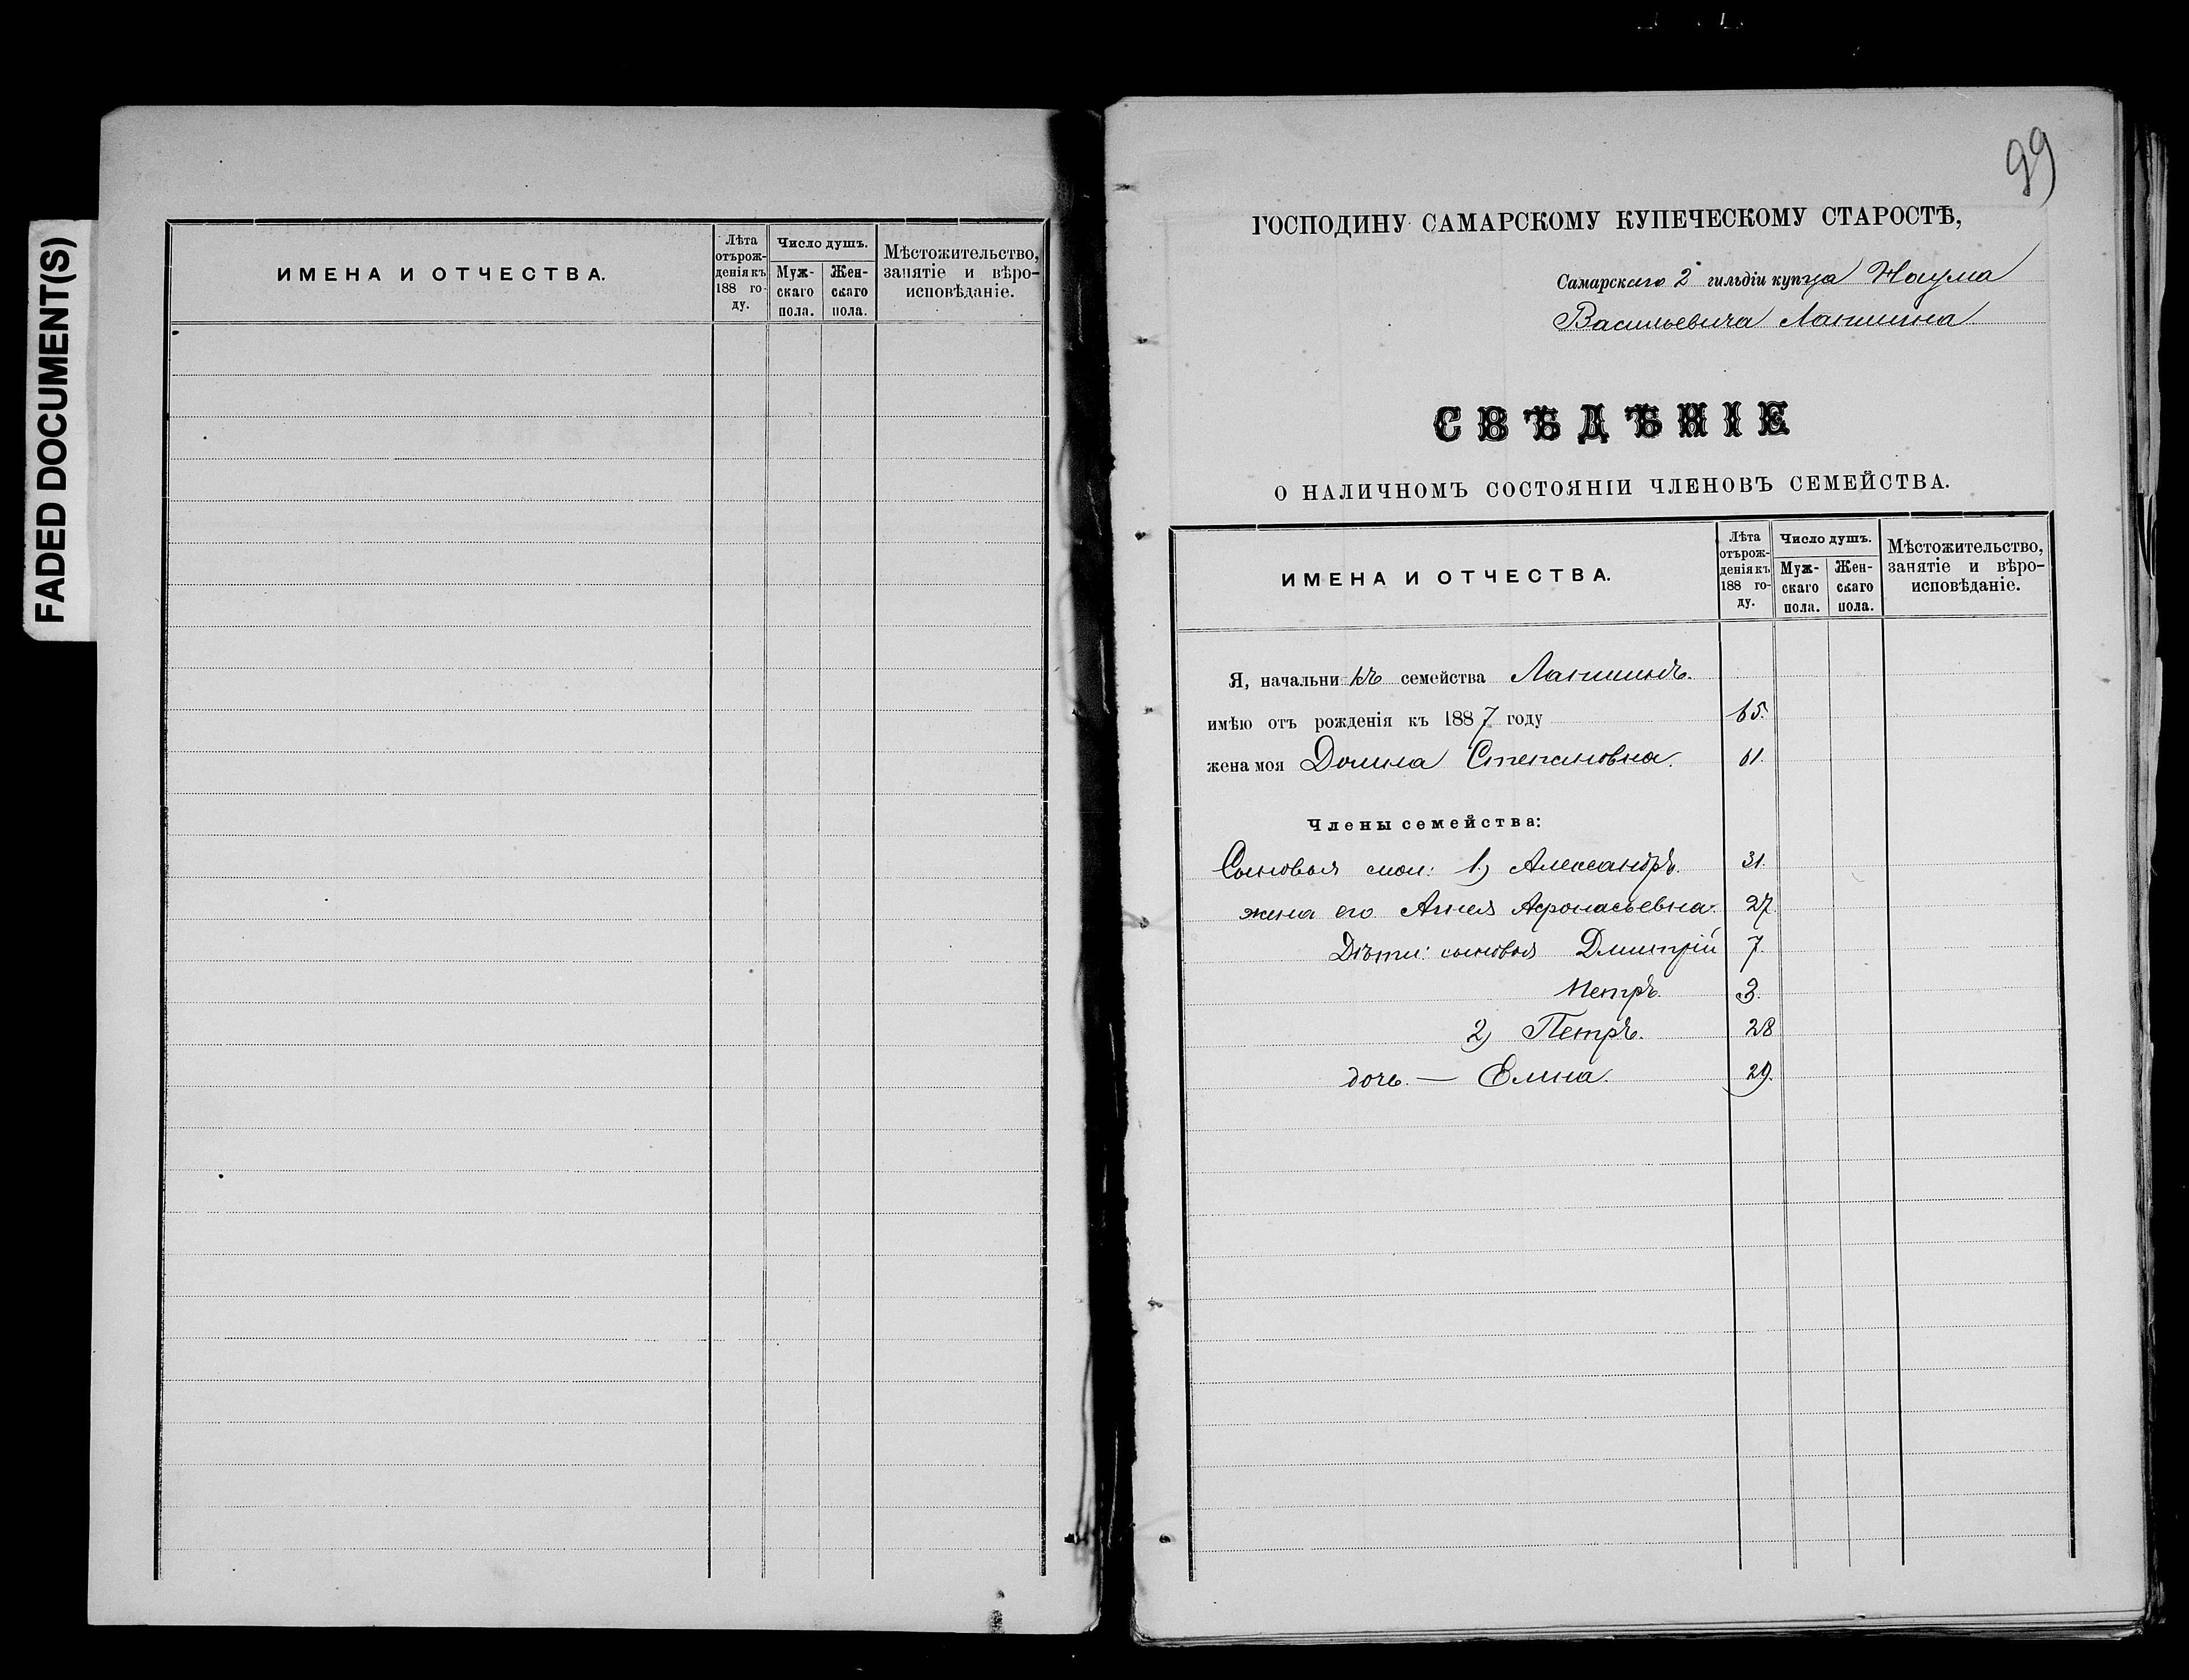 FADED DOCUMENT(S)
ИМЕНА И ОТЧЕСТВА.
Лѣта отърожденія къ 188 году.
Число душъ.
Мужскаго пола.
Женскаго пола.
Мѣстожительство, занятіе и вѣроисповѣданіе.
99
ГОСПОДИНУ САМАРСКОМУ КУПЕЧЕСКОМУ СТАРОСТѢ,
Самарскаго 2 гильдіи купца Наума
Васильевича Лапшина
СВѢДѢНІЕ
О НАЛИЧНОМЪ СОСТОЯНІИ ЧЛЕНОВЪ СЕМЕЙСТВА.
ИМЕНА И ОТЧЕСТВА.
Лѣта отърожденія къ 188 году.
Число душъ.
Мужскаго пола.
Женскаго пола.
Мѣстожительство, занятіе и вѣроисповѣданіе.
Я, начальникъ семейства Лапшинъ.
имѣю отъ рожденія къ 1887 году 65.
жена моя Домна Степановна. 61.
Члены семейства:
Сыновья мои: 1) Александръ. 31.
жена его Афонасьевна. 27
Дѣти: сыновья Дмитрій 7.
Петръ. 3.
2) Петръ. 28
дочь — 29.